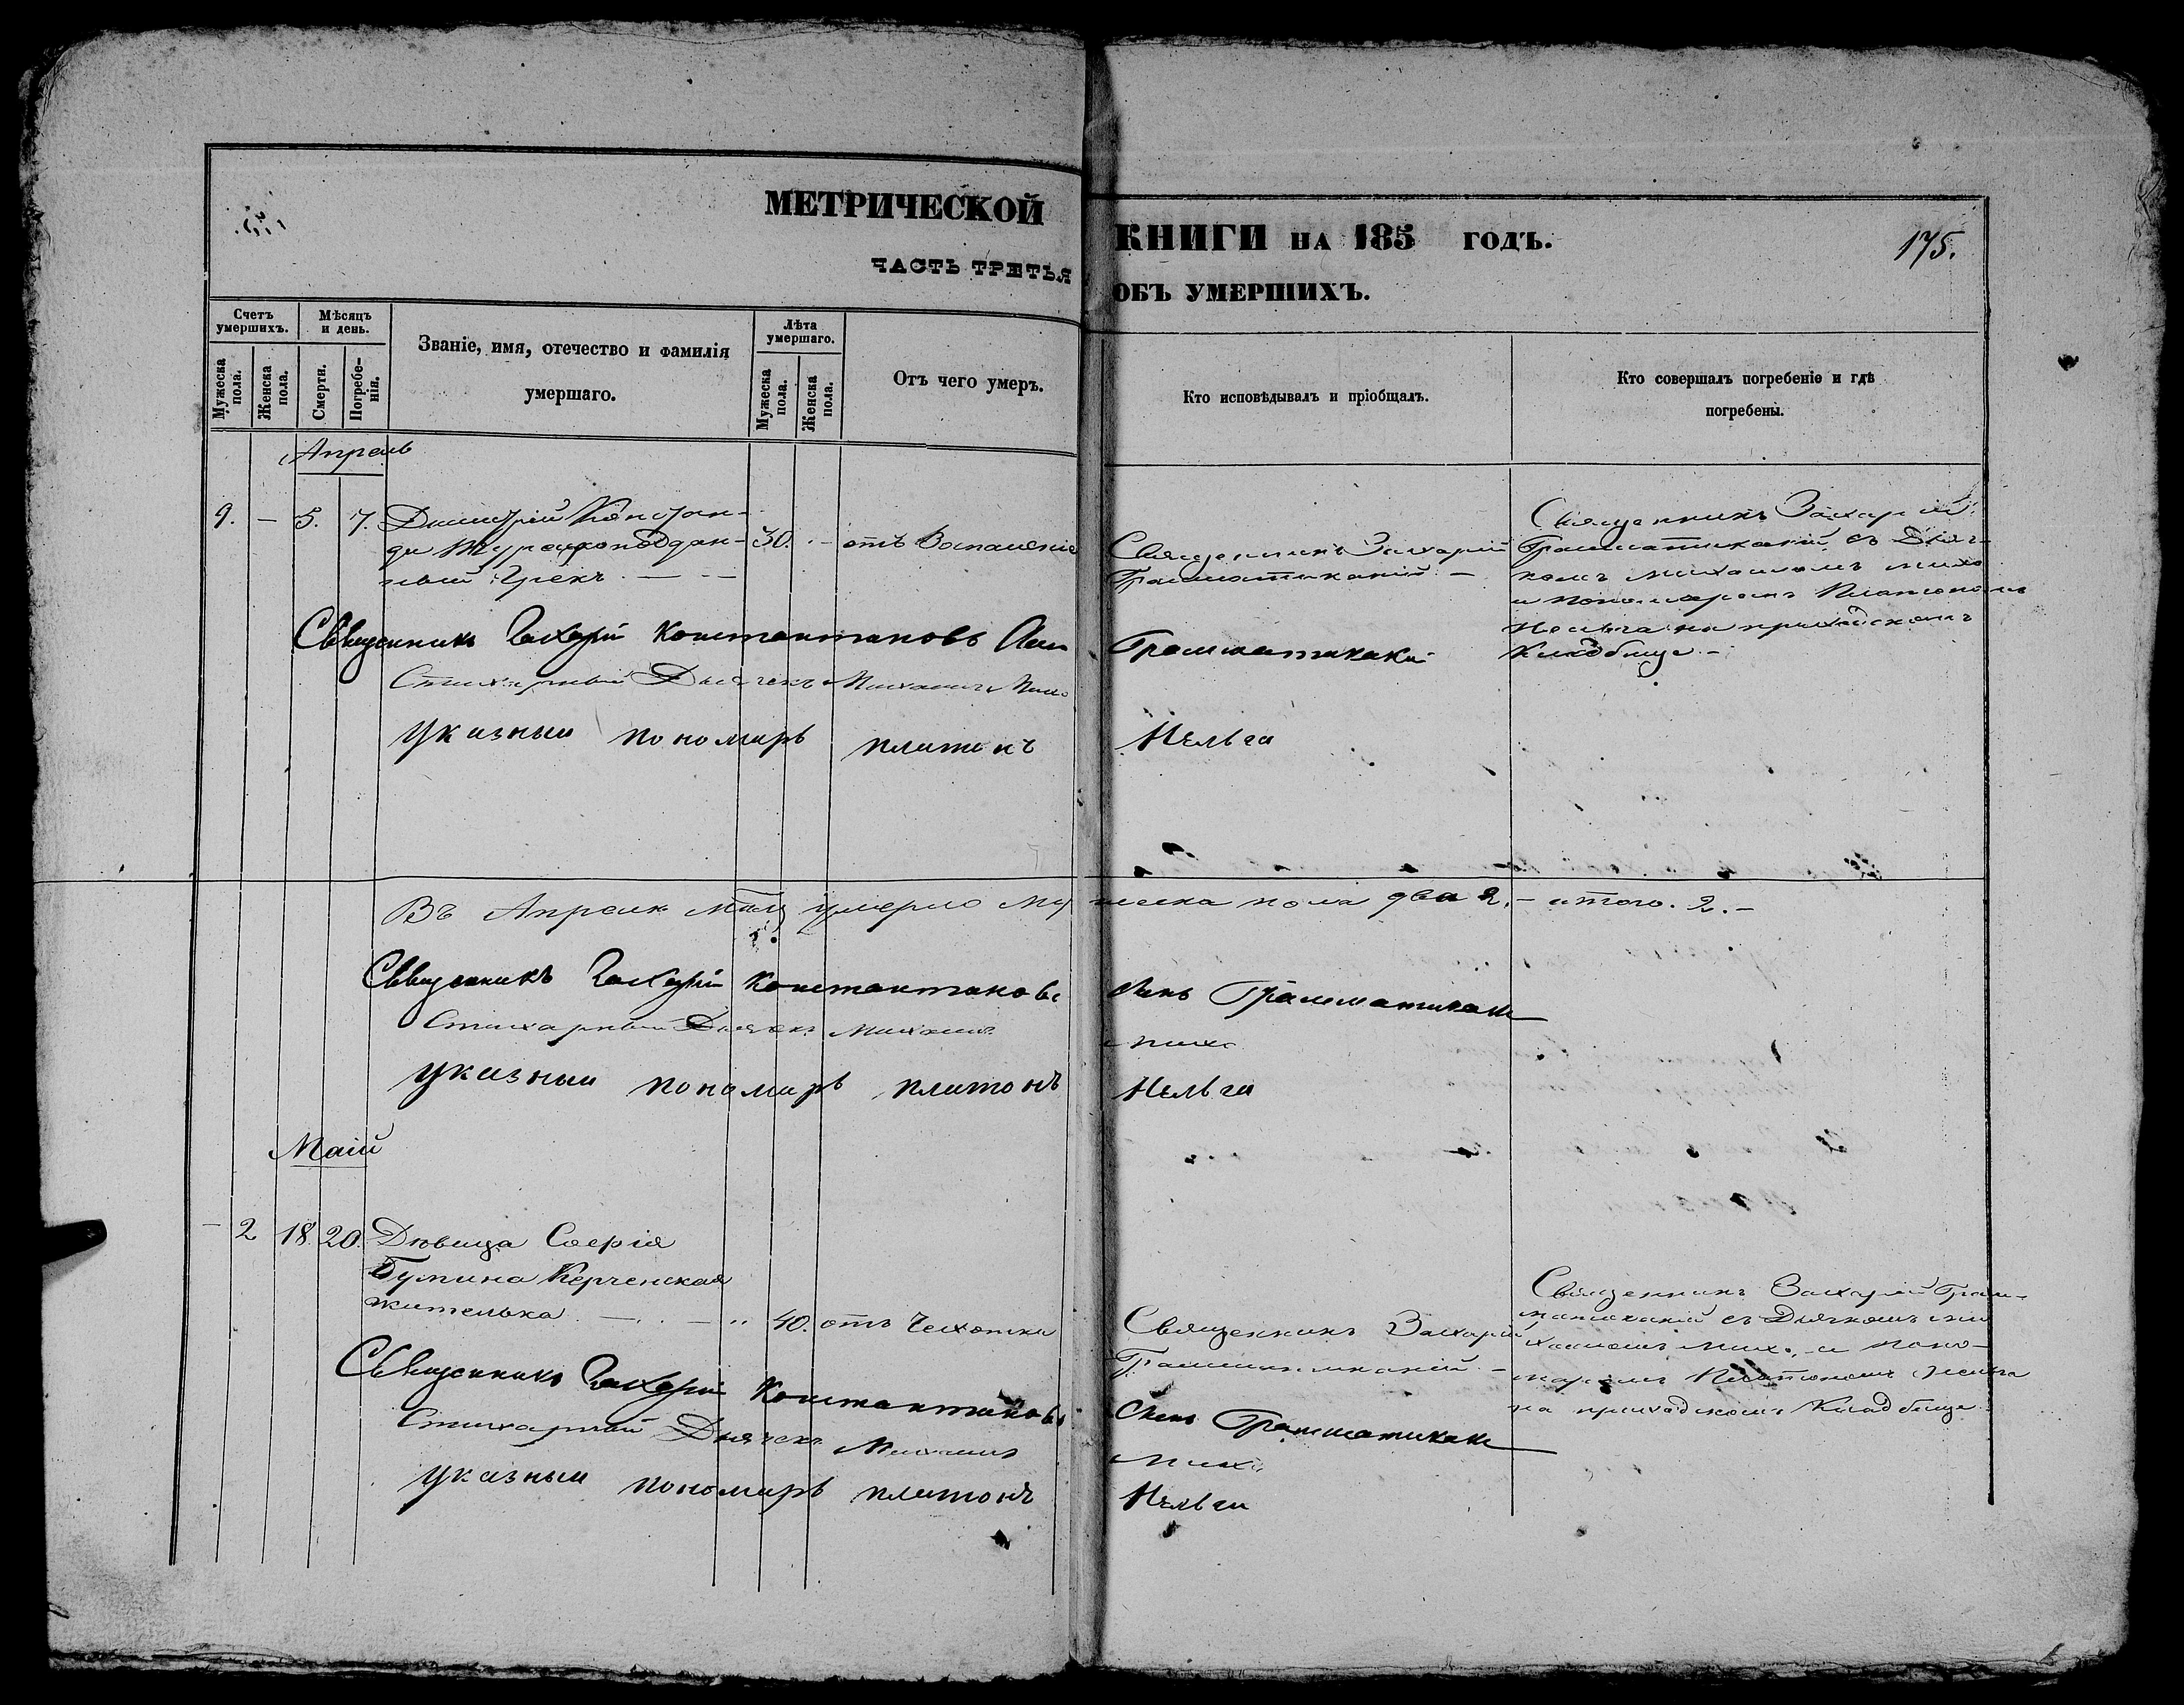 МЕТРИЧЕСКОЙ КНИГИ НА 185 ГОДЪ.
175.
ЧАСТЬ ТРЕТЬЯ ОБЪ УМЕРШИХЪ.
Счетъ умершихъ.
Мужеска пола.
Женска пола.
Мѣсяцъ и день.
Смерти.
Погребе-
нія.
Званіе, имя, отечество и фамилія
умершаго.
Лѣта умершаго.
Мужеска пола.
Женска пола.
Отъ чего умеръ.
Кто исповѣдывалъ и пріобщалъ.
Кто совершалъ погребеніе и гдѣ
погребены.
Апрель
9. — 5. 7. Димитрій Констан-
ди Турецкоподдан- 30. — отъ Воспаленія
ный Грекъ. — —
Священникъ Захарій
Грамматикакій. —
Священникъ Захарій
Грамматикакій, съ Дьяч-
комъ Михаиломъ Михо
и пономаремъ Платономъ
Нельга на приходскомъ
Кладбище. —
Священникъ Захарій Константиновъ Грамматикаки
Стихарный Дьячекъ Михаилъ Михо
указный пономарь платонъ Нельга
Въ Апреле умерло мужеска пола два 2. — итого. 2. —
Священникъ Захарій Константиновъ Грамматикаки
Стихарный Дьячекъ Михаилъ Михо
указный пономарь платонъ Нельга
Маій
— 2 18. 20. Дѣвица Софрія
Керченская
жителька. — . . — " 40. отъ Чехотки
Священникъ Захарій
Грамматикакій. —
Священникъ Захарій Грам-
матикакій съ Дьячкомъ Ми
хаиломъ Михо, и поно-
маремъ Платономъ Нельга
на приходскомъ Кладбище.
Священникъ Захарій Константиновъ Грамматикаки
Стихарный Дьячекъ Михаилъ Михо
указный пономарь платонъ Нельга